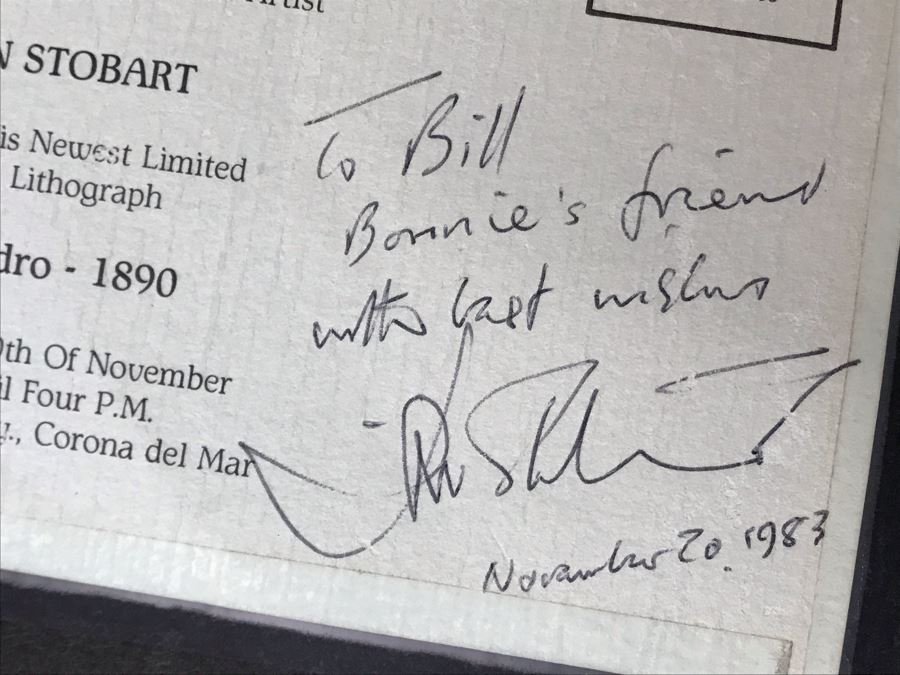 Artist
N STOBART
is Newest Limited
Lithograph
dro - 1890
0th Of November
il Four P.M.
y., Corona del Mar
To Bill
Bonnie's friend
with best wishes
November 20, 1983